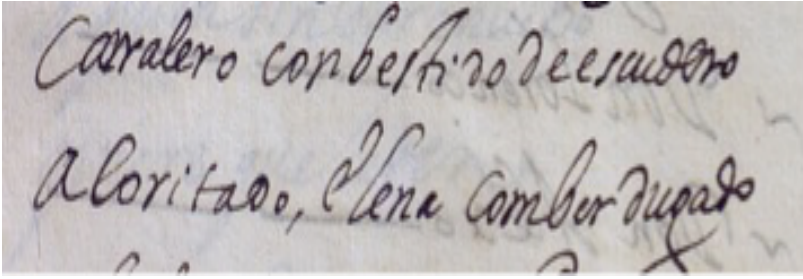 Carralero conbestido de escudero
aloritado, elena comberdugado